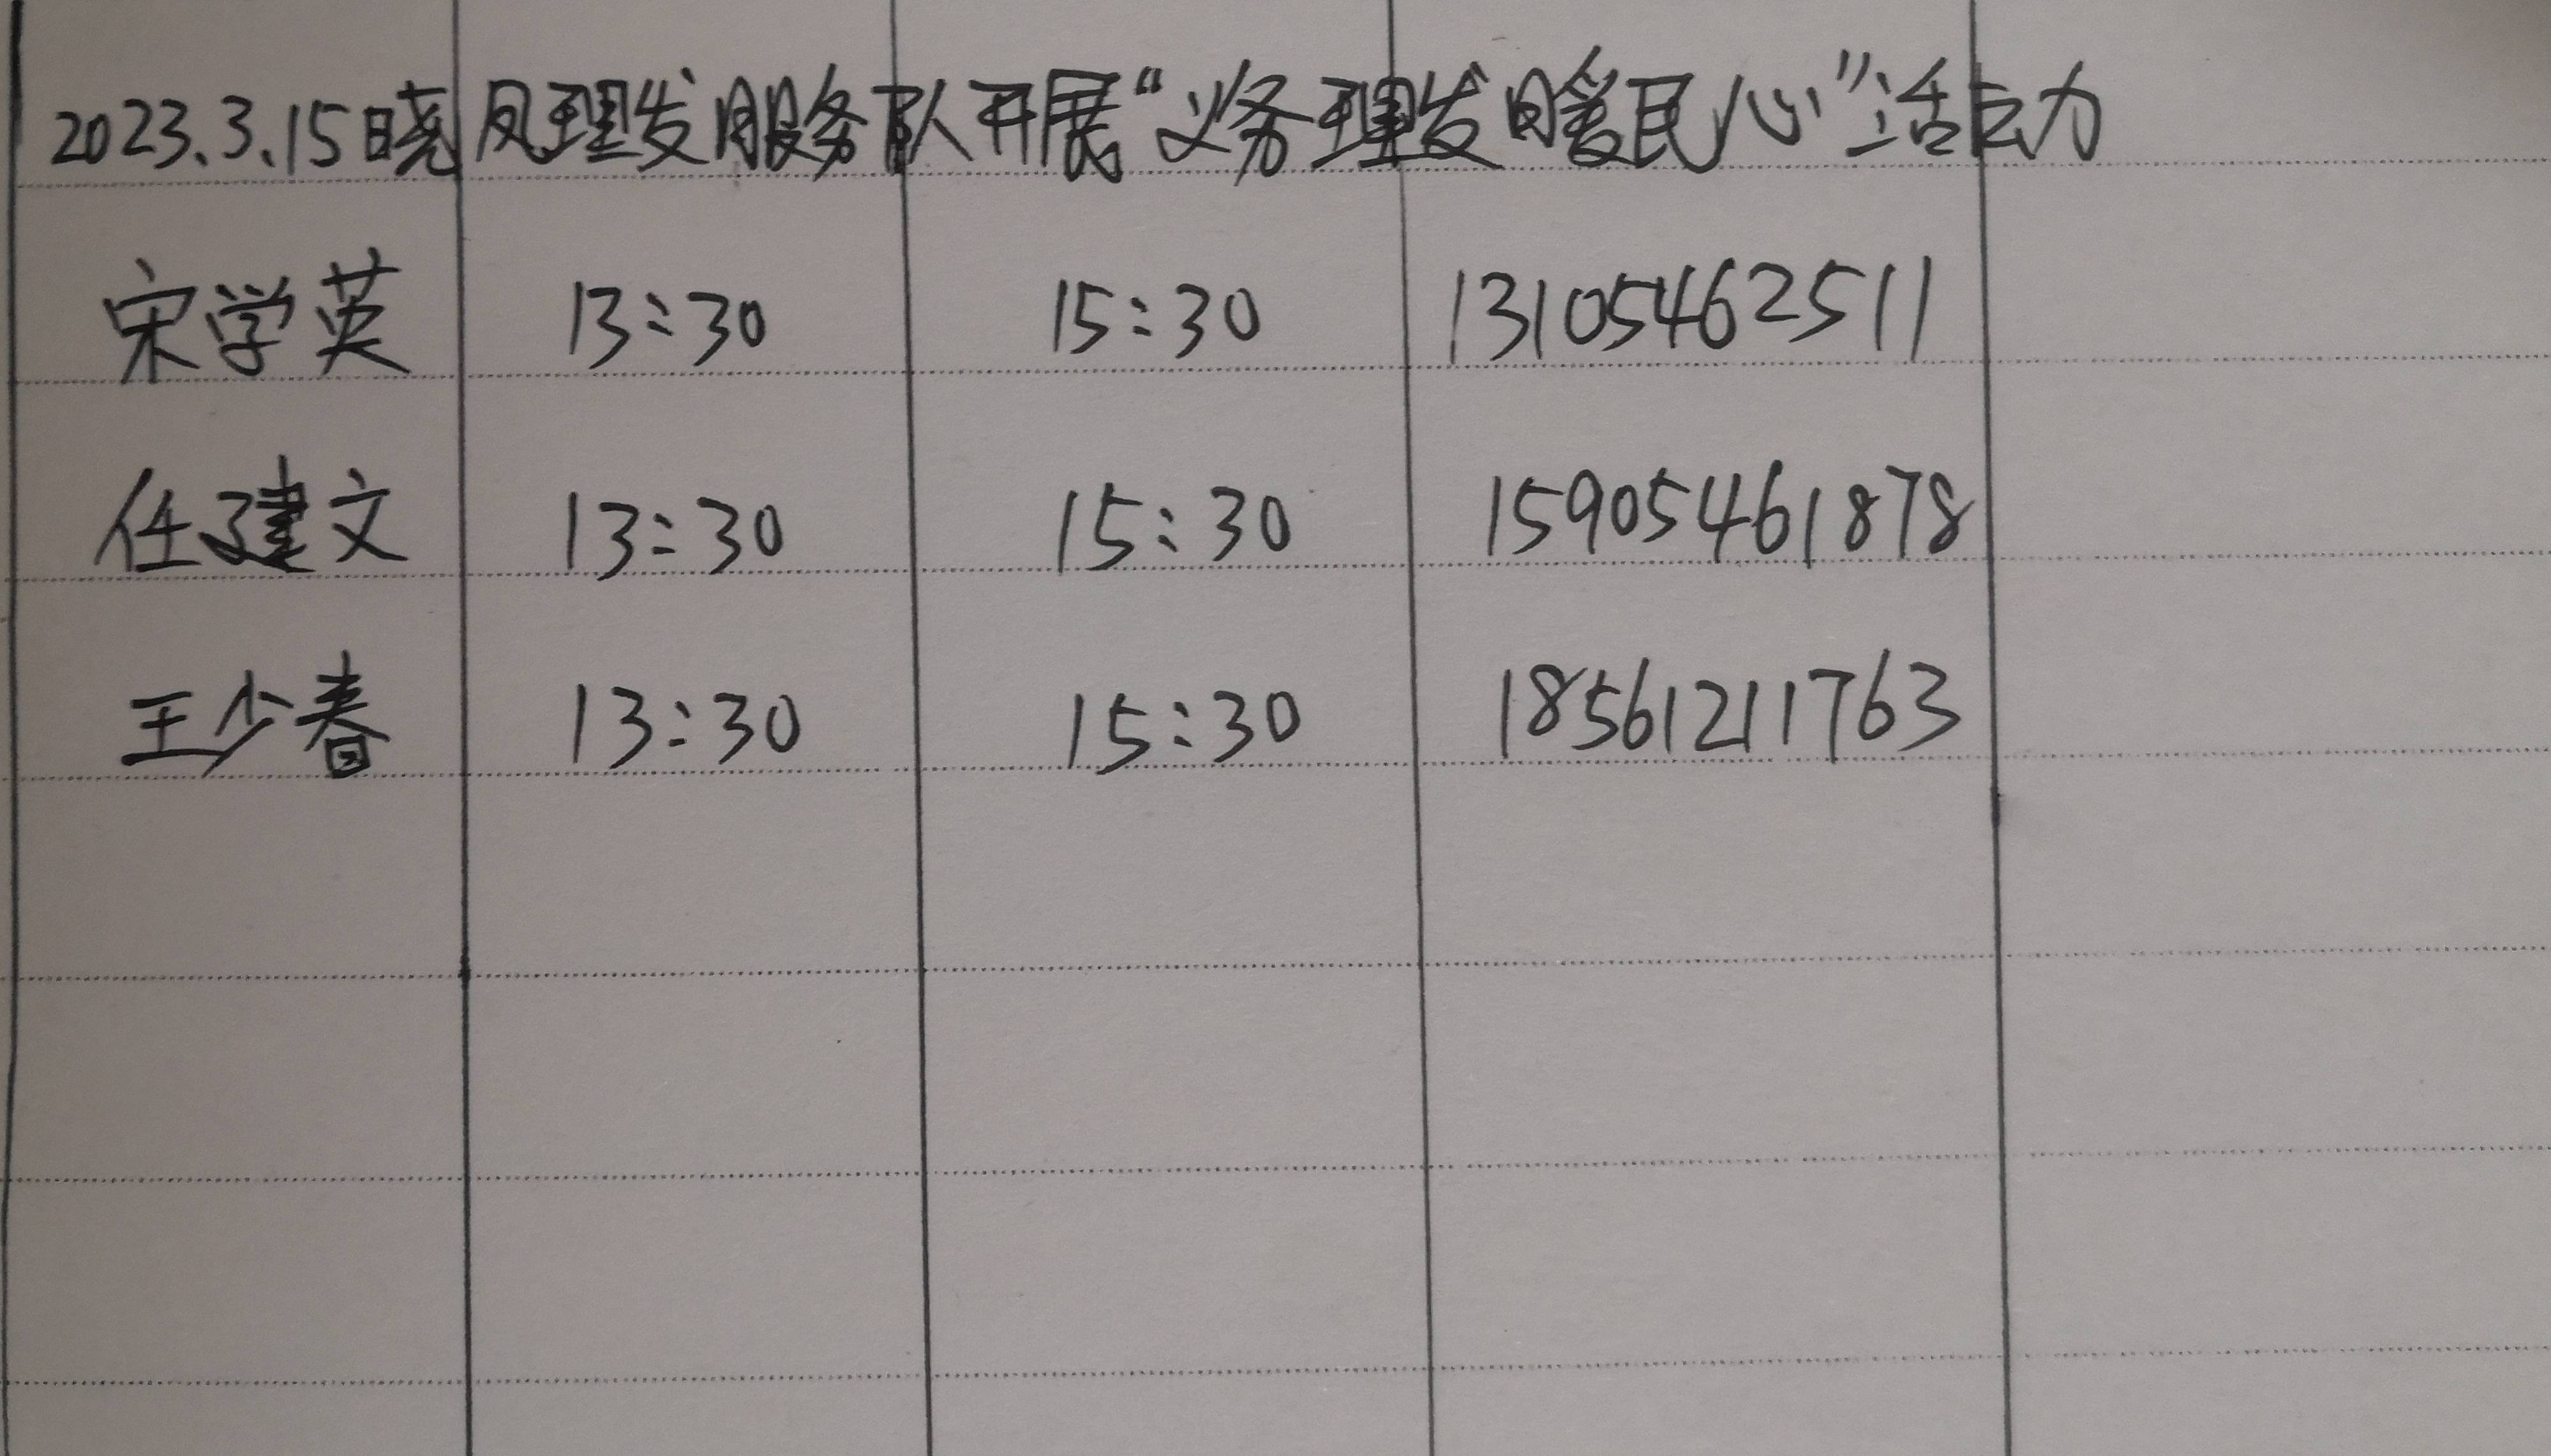 2023.3.15晓凤理发服务队开展“义务理发暖民心”活动
宋学英 13:30 15:30 13105462511
任建文 13:30 15:30 15905461878
王少春 13:30 15:30 18561211763